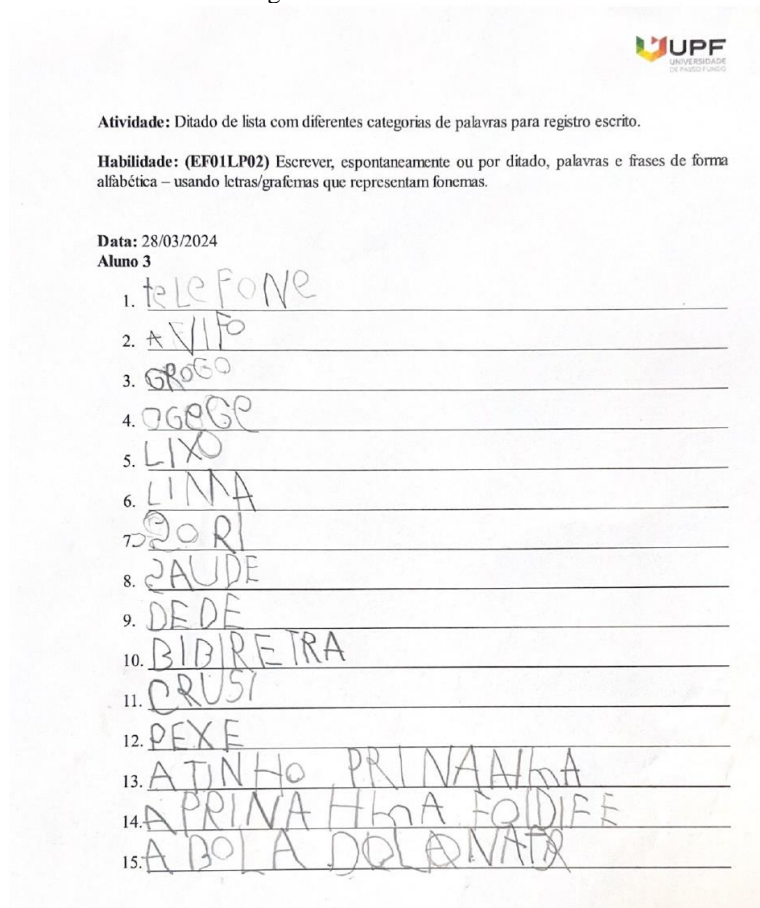 UPF
UNIVERSIDADE
DE PASSO FUNDO
Atividade: Ditado de lista com diferentes categorias de palavras para registro escrito.
Habilidade: (EF01LP02) Escrever, espontaneamente ou por ditado, palavras e frases de forma
alfabética – usando letras/grafemas que representam fonemas.
Data: 28/03/2024
Aluno 3
1. teLeFONe
2. AVIFO
3. GROGO
4. OGEGE
5. LIXO
6. LIMA
7. SORI
8. SAUDE
9. DEDE
10. BIBIRETRA
11. CRUSI
12. PEXE
13. A TINHO PRINANhA
14. A PRINA HhA FOIDIFE
15. A BOLA DOLONATR